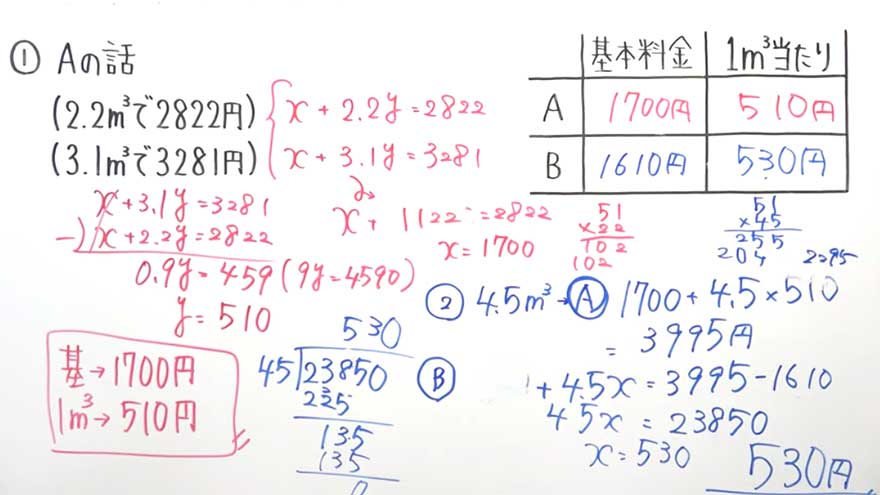 ① Aの話
(2.2m³で2822円)
(3.1m³で3281円)
x + 2.2y = 2822
x + 3.1y = 3281
x + 3.1y = 3281
-) x + 2.2y = 2822
0.9y = 459 (9y = 4590)
y = 510
x + 1122 = 2822
x = 1700
基→1700円
1m³→510円
基本料金 1m³当たり
A 1700円 510円
B 1610円 530円
51
×22
102
102
51
×45
255
204
2295
② 4.5m³→Ⓐ 1700 + 4.5 × 510
= 3995円
Ⓑ
+ 4.5x = 3995 - 1610
45x = 23850
x = 530
530円
530
45)23850
225
135
135
0